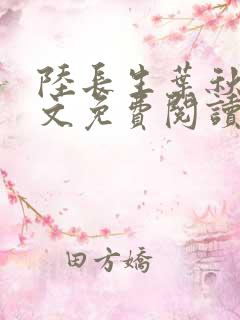 陸長生葉秋
文免費閱讀
田方嬌